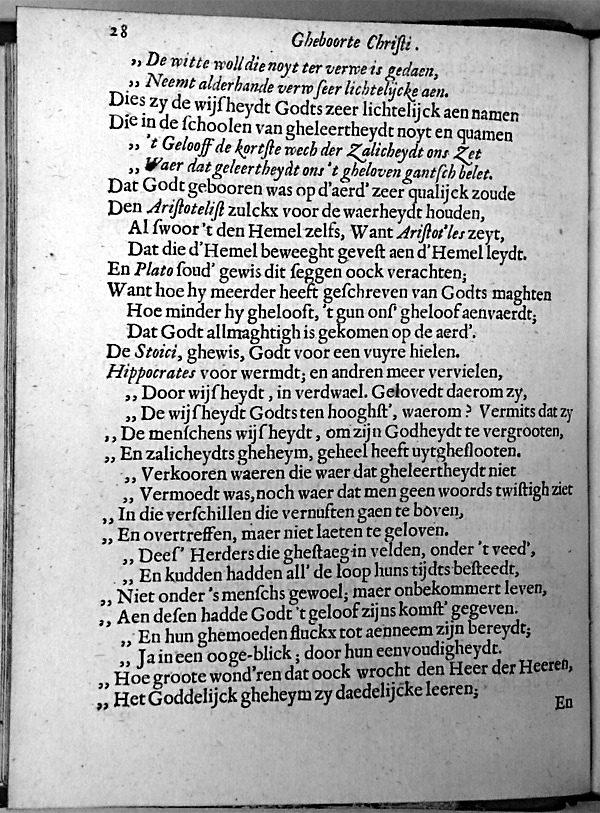 28
Gheboorte Christi.
„ De witte woll die noyt ter verwe is gedaen,
„ Neemt alderhande verw seer lichtelijcke aen.
Dies zy de wijsheydt Godts zeer lichtelijck aen namen
Die in de schoolen van gheleertheydt noyt en quamen
„ 't Gelooff de kortste wech der Zalicheydt ons Zet
„ Waer dat geleertheydt ons 't gheloven gantsch belet.
Dat Godt gebooren was op d'aerd' zeer qualijck zoude
Den Aristotelist zulckx voor de waerheydt houden,
Al swoor 't den Hemel zelfs, Want Aristot'les zeyt,
Dat die d'Hemel beweeght gevest aen d'Hemel leydt.
En Plato soud' gewis dit seggen oock verachten;
Want hoe hy meerder heeft geschreven van Godts maghten
Hoe minder hy ghelooft, 't gun ons' gheloof aenvaerdt;
Dat Godt allmaghtigh is gekomen op de aerd'.
De Stoici, ghewis, Godt voor een vuyre hielen.
Hippocrates voor wermdt; en andren meer vervielen,
„ Door wijsheydt, in verdwael. Gelovedt daerom zy,
„ De wijsheydt Godts ten hooghst', waerom? Vermits dat zy
„ De menschens wijsheydt, om zijn Godheydt te vergrooten,
„ En zalicheydts gheheym, geheel heeft uytgheslooten.
„ Verkooren waeren die waer dat gheleertheydt niet
„ Vermoedt was, noch waer dat men geen woords twistigh ziet
„ In die verschillen die vernuften gaen te boven,
„ En overtreffen, maer niet laeten te geloven.
„ Dees' Herders die ghestaeg in velden, onder 't veed',
„ En kudden hadden all' de loop huns tijdts besteedt,
„ Niet onder 's menschs gewoel; maer onbekommert leven,
„ Aen desen hadde Godt 't geloof zijns komst' gegeven.
„ En hun ghemoeden fluckx tot aenneem zijn bereydt;
„ Ja in een ooge-blick; door hun eenvoudigheydt.
„ Hoe groote wond'ren dat oock wrocht den Heer der Heeren,
„ Het Goddelijck gheheym zy daedelijcke leeren;
En